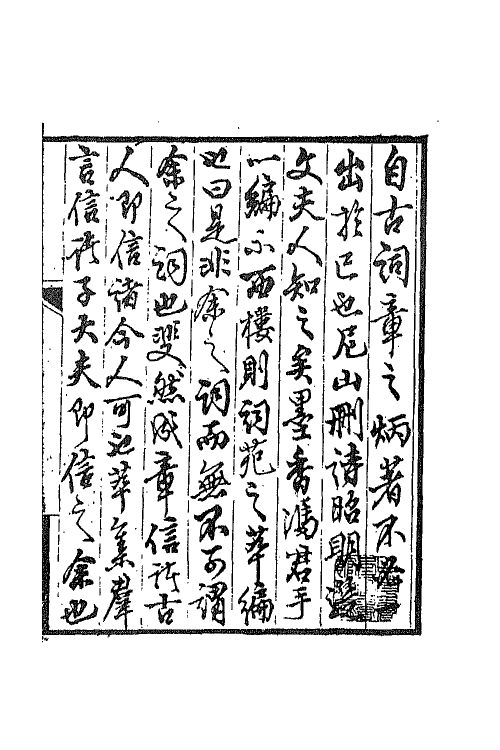 自古詞章之炳著不必
出於已也尼山刪詩昭明選
文夫人知之矣墨香馮君手
一編示西樓則詞苑之萃編
也曰是非余之詞而無不可謂
余之詞也斐然成章信諸古
人即信諸今人可也萃集羣
言信諸子大夫即信之余也